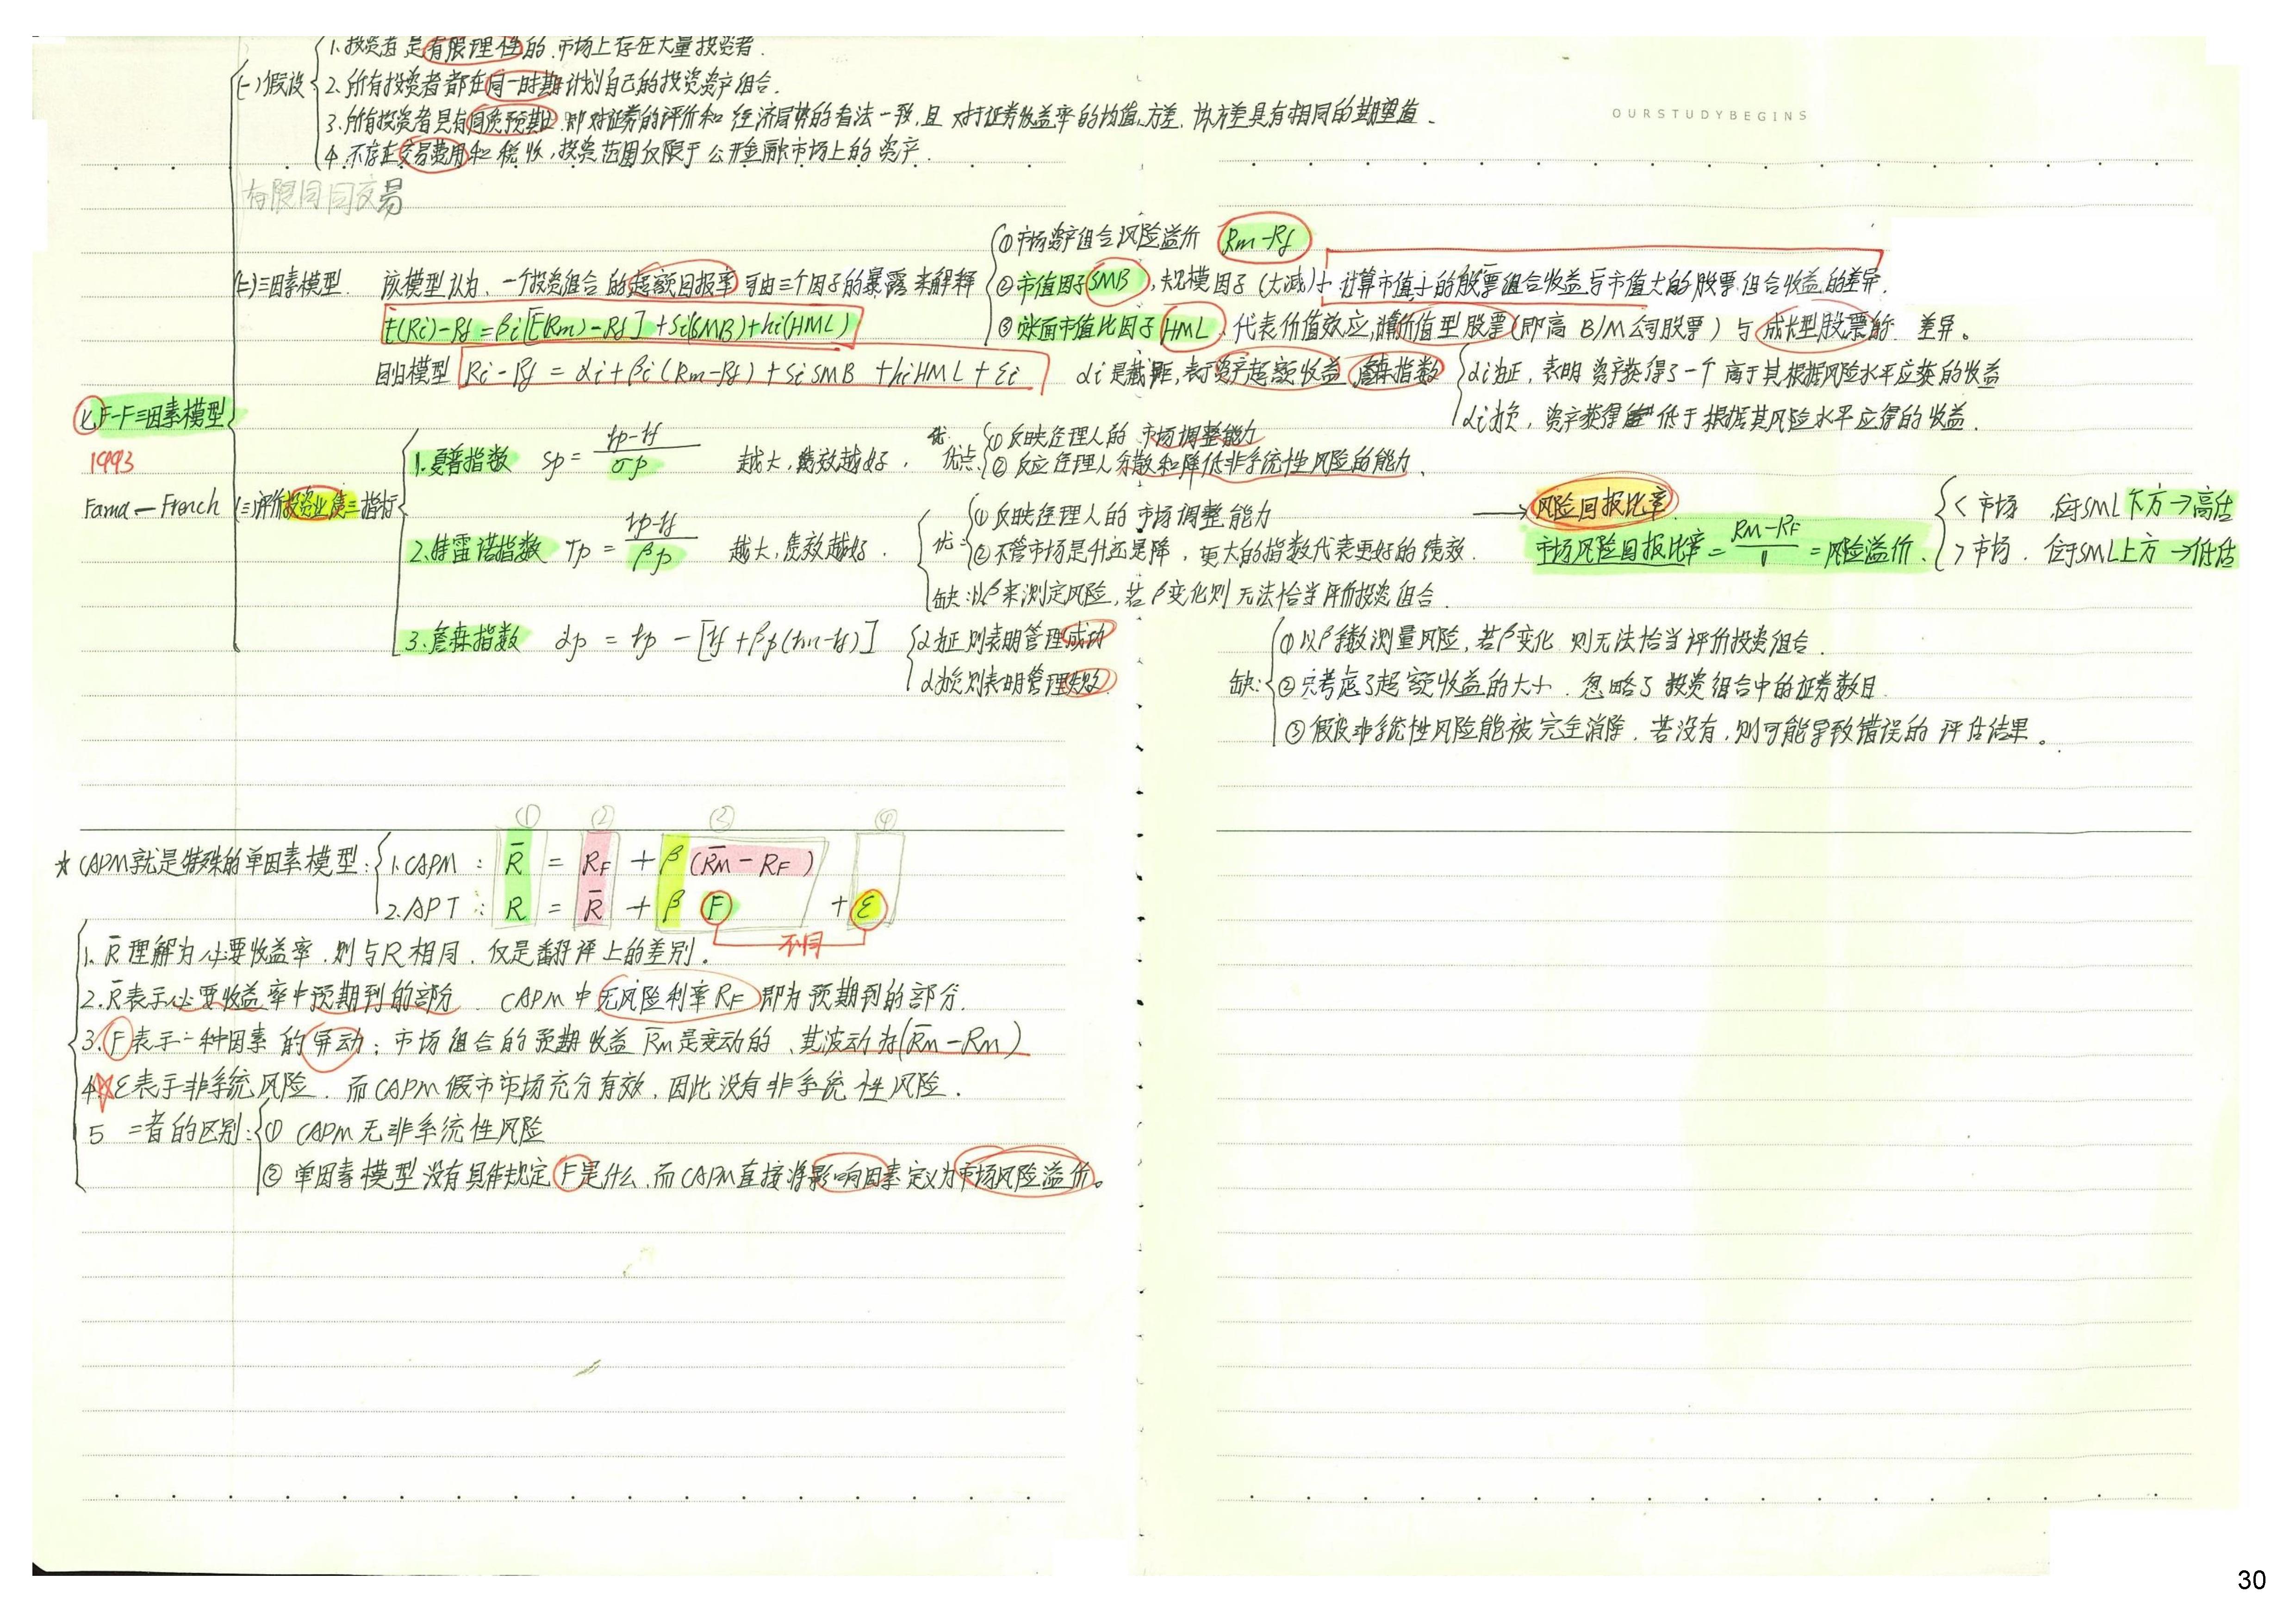 1. 投资者是有限理性的.市场上存在大量投资者.
(一)假设
2. 所有投资者都在同一时期计划自己的投资资产组合.
3. 所有投资者具有同质预期,即对证券的评价和经济局势的看法一致,且对于证券收益率的均值、方差、协方差具有相同的期望值.
OURSTUDYBEGINS
4. 不存在交易费用和税收,投资范围仅限于公开金融市场上的资产.
有限同同交易
①市场资产组合风险溢价 Rm-Rf
(二)三因素模型. 该模型认为,一个投资组合的超额回报率可由三个因子的暴露来解释
②市值因子SMB,规模因子(大减)小 计算市值小的股票组合收益与市值大的股票组合收益的差异.
E(Ri)-Rf=βi[E(Rm)-Rf]+Si(SMB)+hi(HML)
③账面市值比因子HML,代表价值效应,价值型股票(即高B/M公司股票)与成长型股票的 差异。
回归模型 Ri-Rf=αi+βi(Rm-Rf)+SiSMB+hiHML+εi αi是截距,表示资产超额收益 詹森指数
αi为正,表明资产获得了一个高于其根据风险水平应获的收益
αi为负,资产获得低于根据其风险水平应得的收益.
F-F三因素模型
1993
Fama—French
(三)评价投资业绩三指标
1.夏普指数 Sp=(rp-rf)/σp 越大,绩效越好.
优点:①反映经理人的市场调整能力
②反应经理人分散和降低非系统性风险的能力.
2.特雷诺指数 Tp=(rp-rf)/βp 越大,绩效越好.
优:①反映经理人的市场调整能力
②不管市场是升还是降,更大的指数代表更好的绩效.
缺:以β来测定风险,若β变化则无法恰当评价投资组合.
→风险回报比率
市场风险回报比率=(RM-RF)/1=风险溢价.
<市场 位于SML下方→高估
>市场. 位于SML上方→低估
3.詹森指数 αp=rp-[rf+βp(rm-rf)]
α为正则表明管理成功
α为负则表明管理失败
缺:
①以β系数测量风险,若β变化则无法恰当评价投资组合.
②只考虑了超额收益的大小.忽略了投资组合中的证券数目.
③假设非系统性风险能被完全消除.若没有,则可能导致错误的评估结果。
① ② ③ ④
☆CAPM就是特殊的单因素模型:
1.CAPM: R̄ = RF + β(R̄M-RF)
2.APT: R = R̄ + β F + ε
不同
1. R̄理解为必要收益率.则与R相同.仅是翻译上的差别。
2. R̄表示必要收益率中预期到的部分. CAPM中无风险利率RF即为预期到的部分.
3. F表示一种因素的异动;市场组合的预期收益R̄m是变动的、其波动为(R̄m-Rm)
4.☆ε表于非系统风险.而CAPM假市市场充分有效.因此没有非系统性风险.
5 二者的区别:①CAPM无非系统性风险
②单因素模型没有具体规定F是什么.而CAPM直接将影响因素定义为市场风险溢价。
30